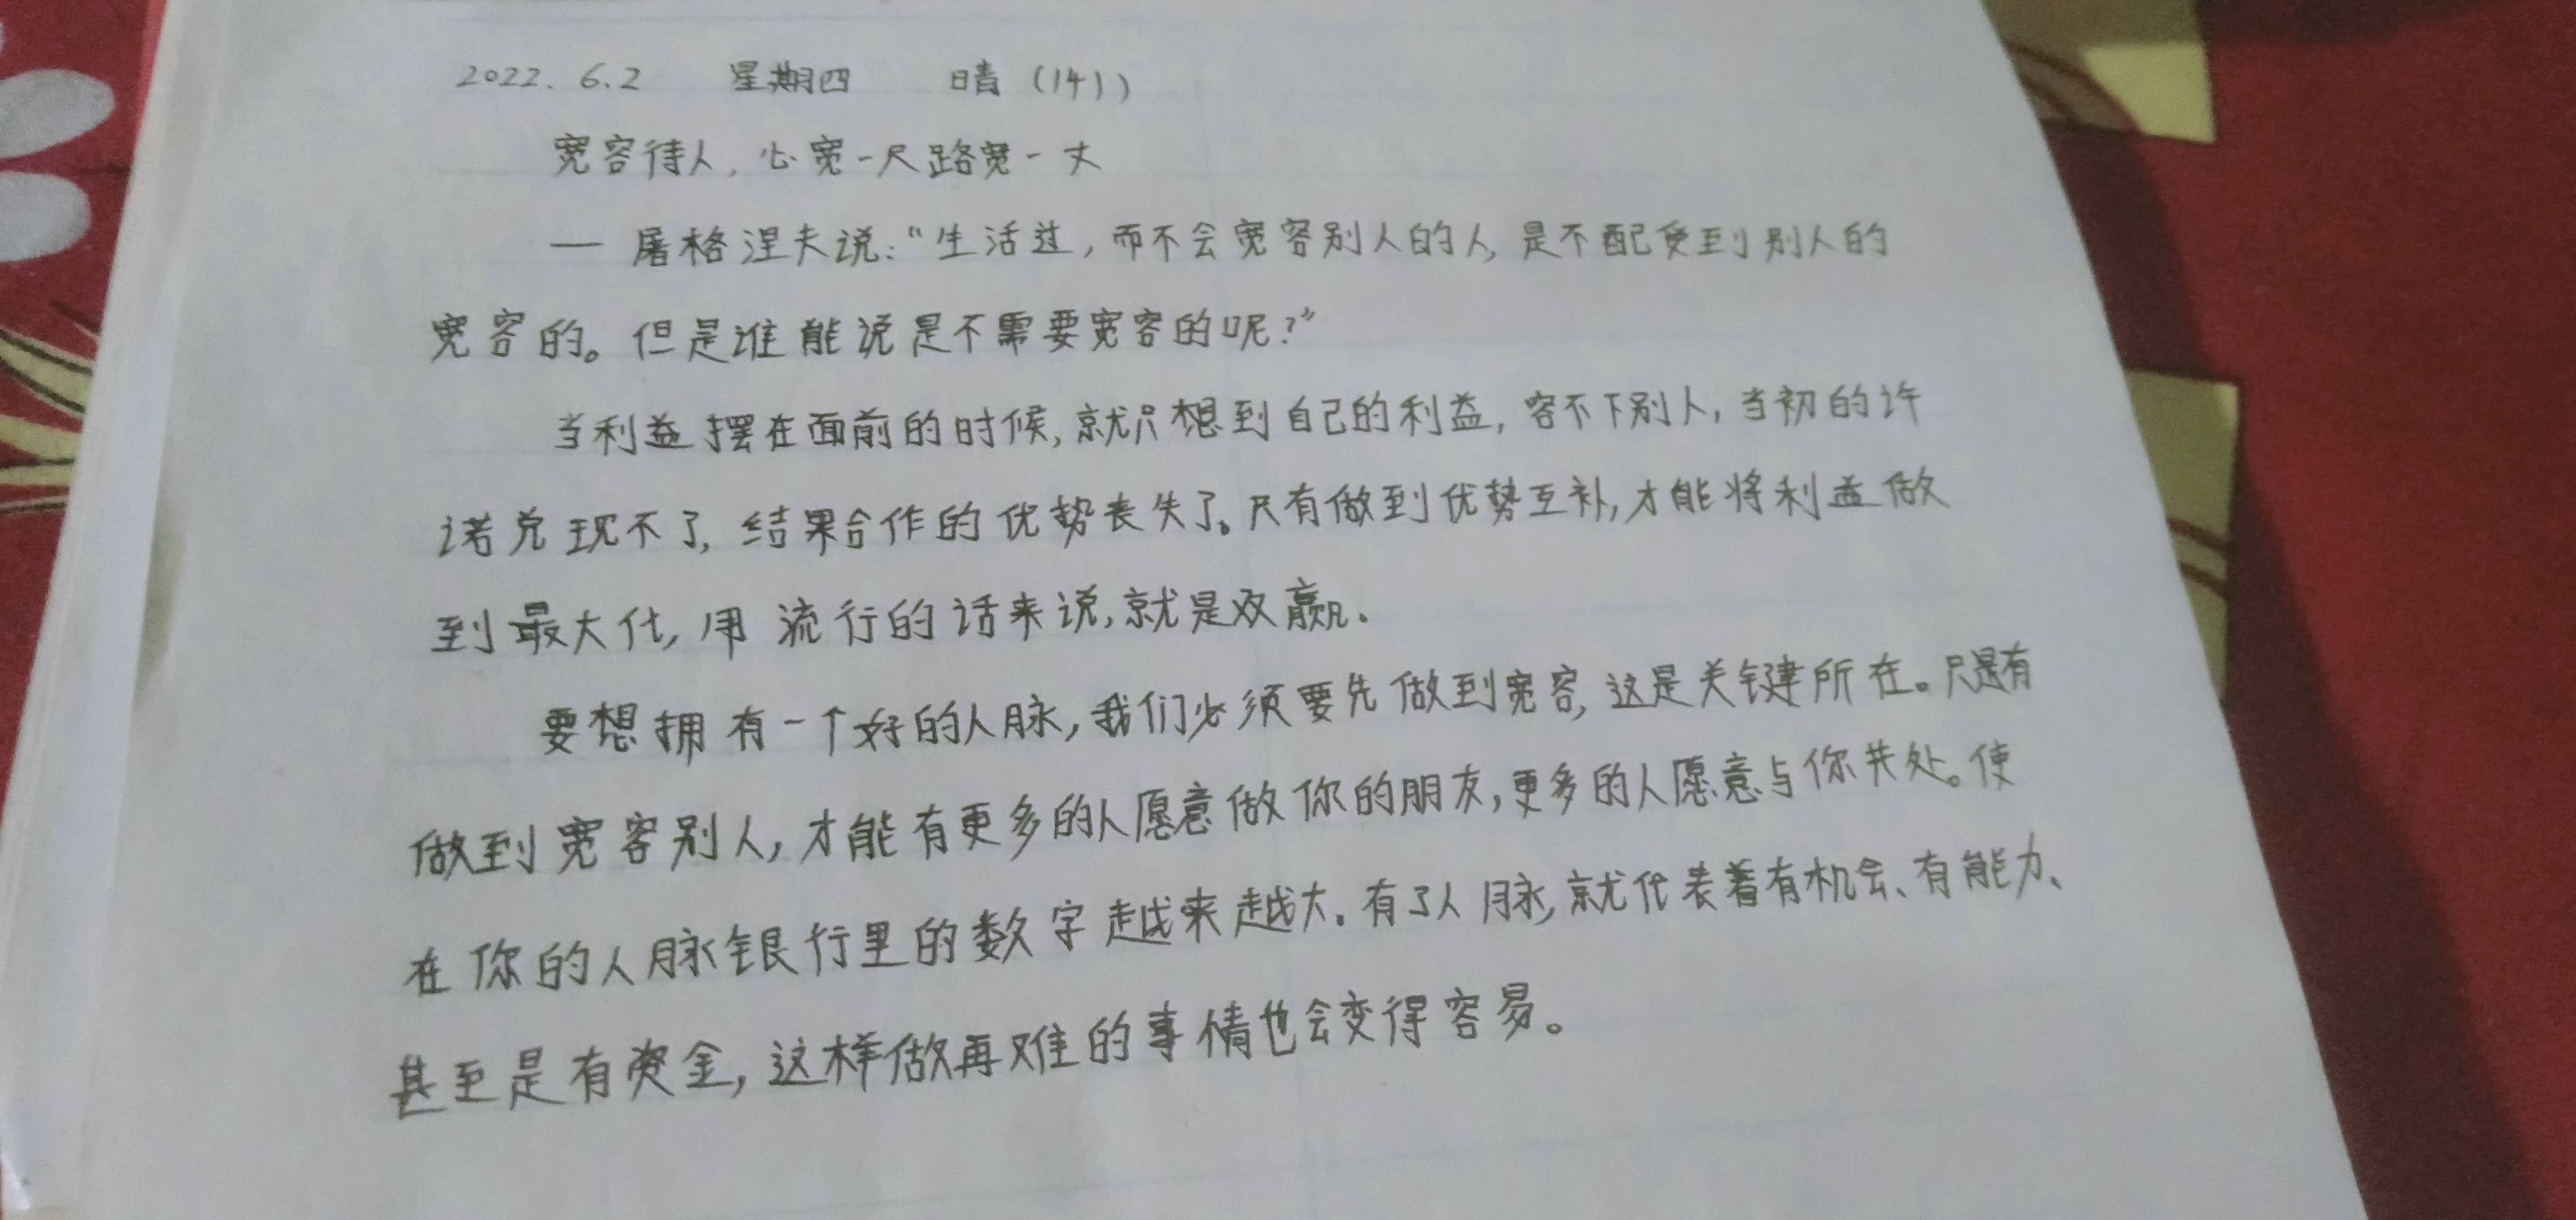 2022.6.2 星期四 晴（141）
宽容待人，心宽一尺路宽一丈
— 屠格涅夫说：“生活过，而不会宽容别人的人，是不配受到别人的
宽容的。但是谁能说是不需要宽容的呢？”
当利益摆在面前的时候，就只想到自己的利益，容不下别人，当初的许
诺兑现不了，结果合作的优势丧失了。只有做到优势互补，才能将利益做
到最大化，用流行的话来说，就是双赢。
要想拥有一个好的人脉，我们必须要先做到宽容，这是关键所在。只有
做到宽容别人，才能有更多的人愿意做你的朋友，更多的人愿意与你共处。使
在你的人脉银行里的数字越来越大。有了人脉，就代表着有机会、有能力、
甚至是有资金，这样做再难的事情也会变得容易。